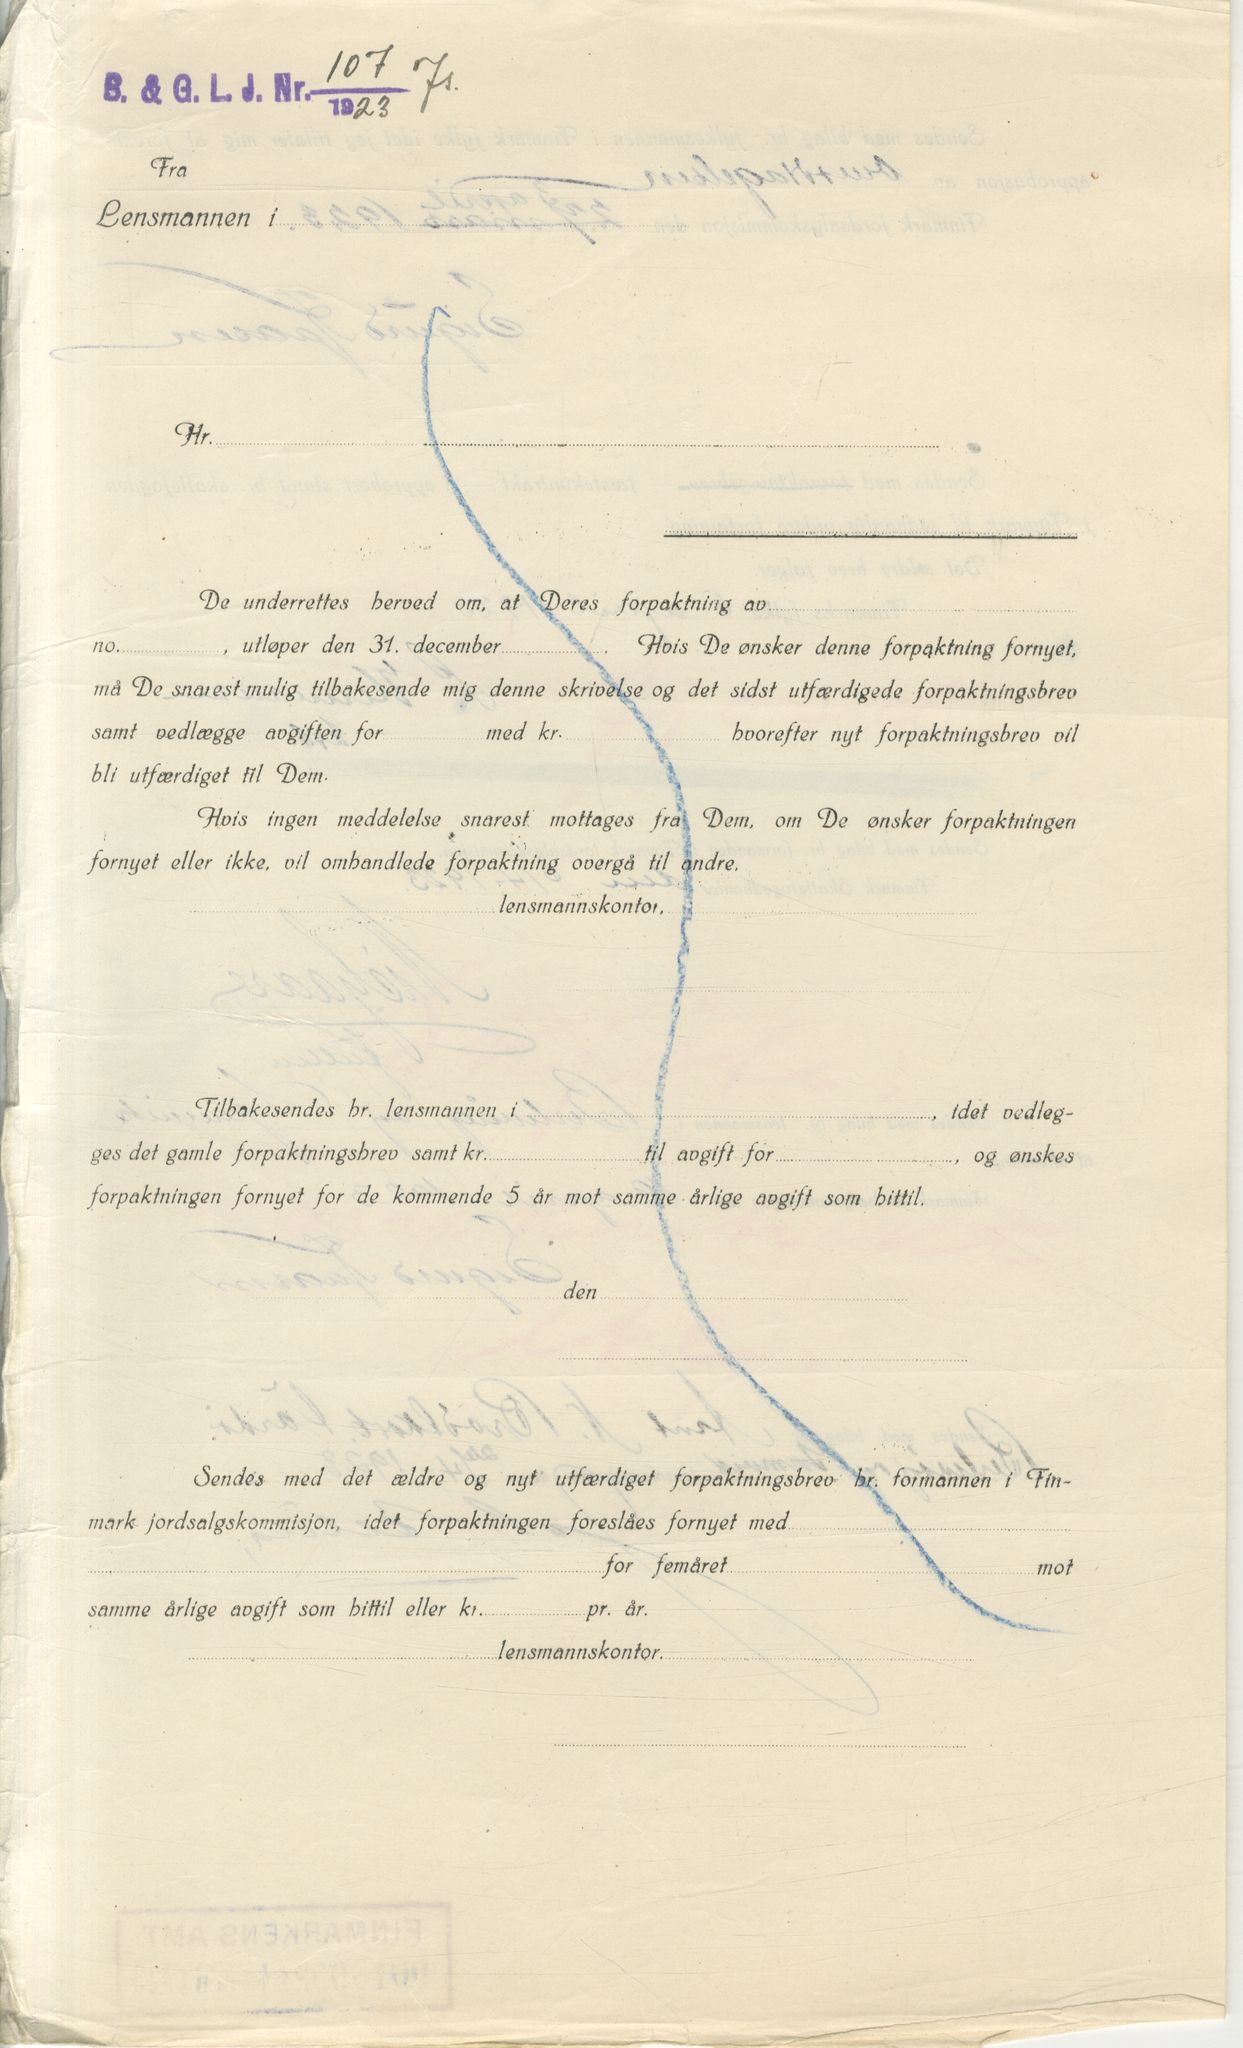 B. & G. L. J. Nr. 107
1923
Fra
Lensmannen i
Hr.
De underrettes herved om, at Deres forpaktning av
no. , utløper den 31. december . Hvis De ønsker denne forpaktning fornyet,
må De snarest mulig tilbakesende mig denne skrivelse og det sidst utfærdigede forpaktningsbrev
samt vedlægge avgiften for med kr. hvorefter nyt forpaktningsbrev vil
bli utfærdiget til Dem.
Hvis ingen meddelelse snarest mottages fra Dem, om De ønsker forpaktningen
fornyet eller ikke, vil omhandlede forpaktning overgå til andre.
lensmannskontor,
Tilbakesendes hr. lensmannen i , idet vedleg-
ges det gamle forpaktningsbrev samt kr. til avgift for , og ønskes
forpaktningen fornyet for de kommende 5 år mot samme årlige avgift som hittil.
den
Sendes med det ældre og nyt utfærdiget forpaktningsbrev hr. formannen i Fin-
mark jordsalgskommisjon, idet forpaktningen foreslåes fornyet med
for femåret mot
samme årlige avgift som hittil eller kr. pr. år.
lensmannskontor.
FINMARKENS AMT